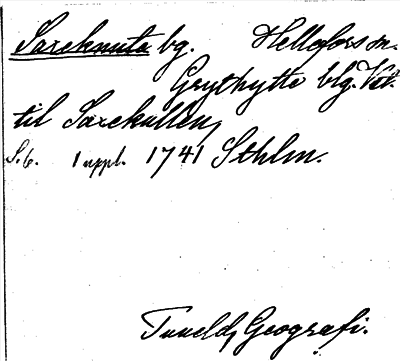 Saxeknuta bg. Hellefors sn.
Grythytte blg. Vstm.
til Saxekullen,
S. 6. 1 uppl. 1741 Sthlm.
Tuneld, Geografi.